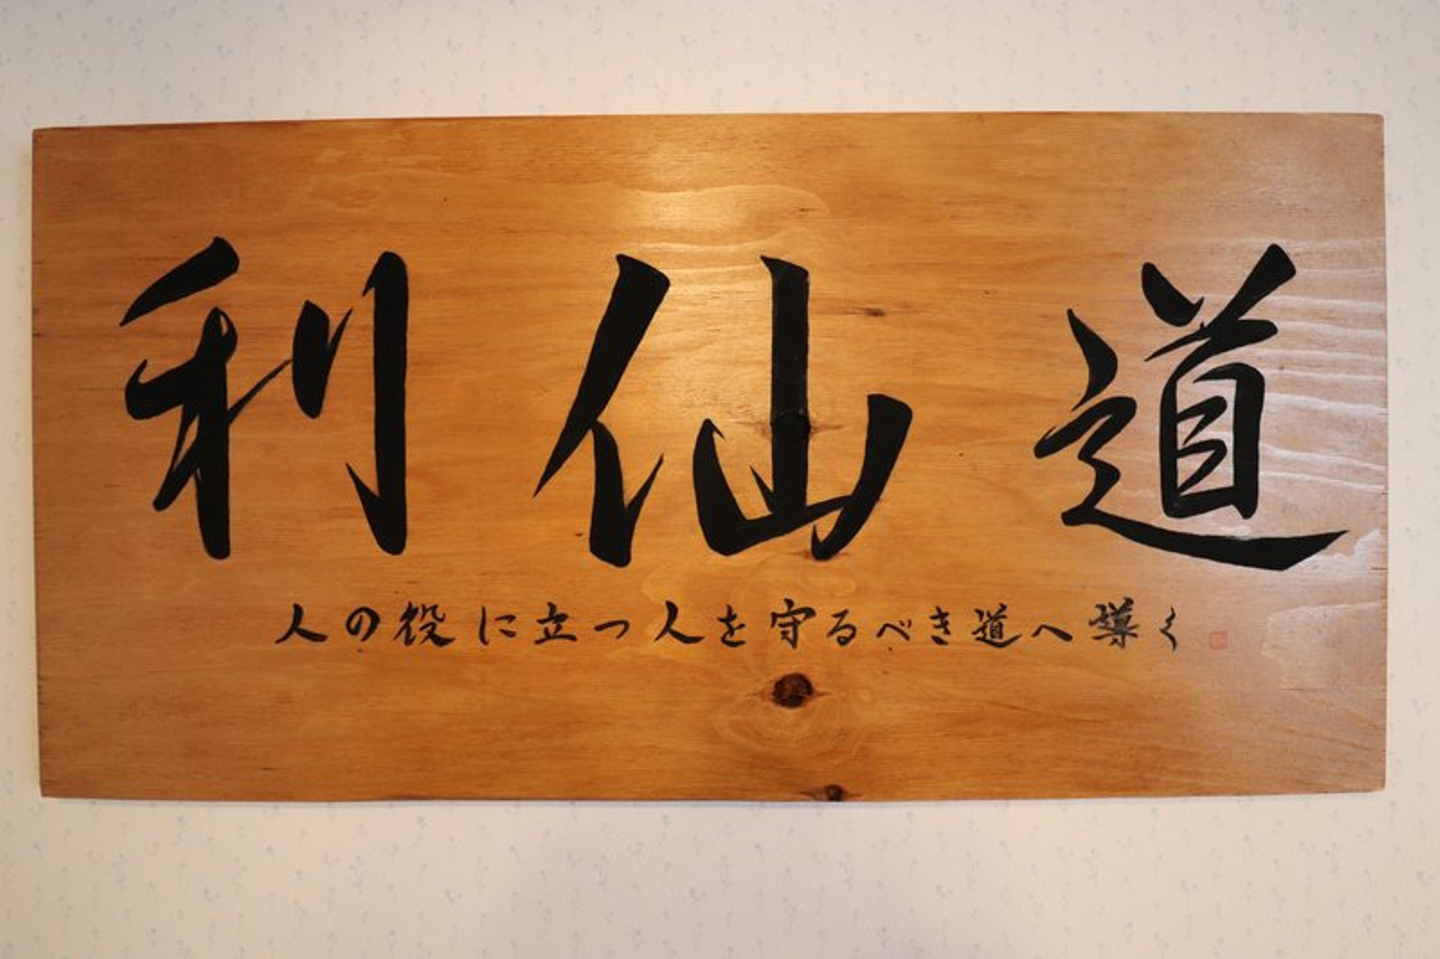 利仙道
人の役に立つ人を守るべき道へ導く